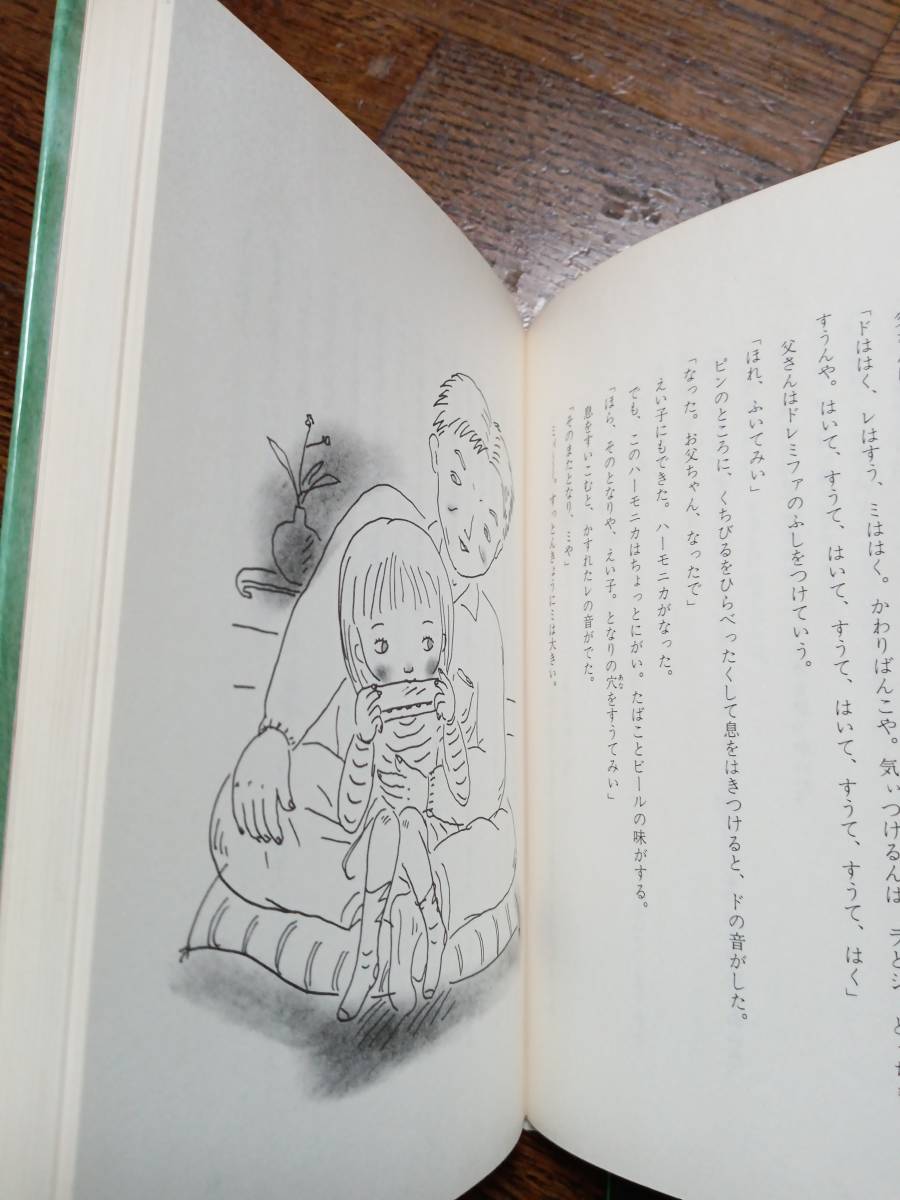 「ドははく、レはすう、ミははく。かわりばんこや。気ぃつけるんは
すうんや。はいて、すうて、はいて、すうて、はいて、すうて、すうて、はく」
父さんはドレミファのふしをつけていう。
「ほれ、ふいてみい」
ピンのところに、くちびるをひらべったくして息をはきつけると、ドの音がした。
「なった。お父ちゃん、なったで」
えい子にもできた。ハーモニカがなった。
でも、このハーモニカはちょっとにがい。たばことビールの味がする。
「ほら、そのとなりや、えい子。となりの穴をすうてみい」
あな
息をすいこむと、かすれたレの音がでた。
「そのまたとなり、ミや」
ミィーー。すっとんきょうにミは大きい。